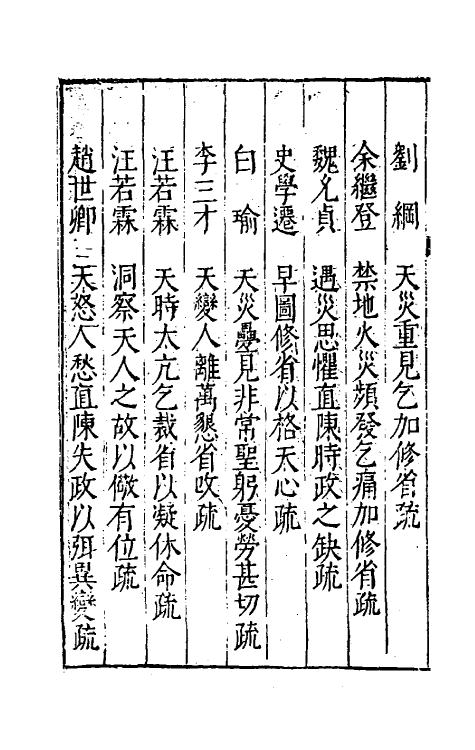 劉綱　天災重見乞加修省疏
余繼登　禁地火災頻發乞痛加修省疏
魏允貞　遇災思懼直陳時政之缺疏
史學遷　早圖修省以格天心疏
白瑜　天災疊見非常聖躬憂勞甚切疏
李三才　天變人離萬懇省改疏
汪若霖　天時太亢乞裁省以凝休命疏
汪若霖　洞察天人之故以儆有位疏
趙世卿　天怒人愁直陳失政以弭異變疏